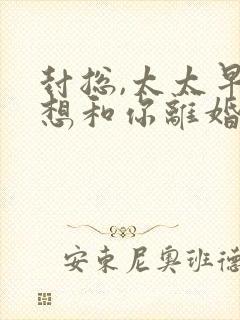 封总,太太早
想和你離婚
安東尼奧班德